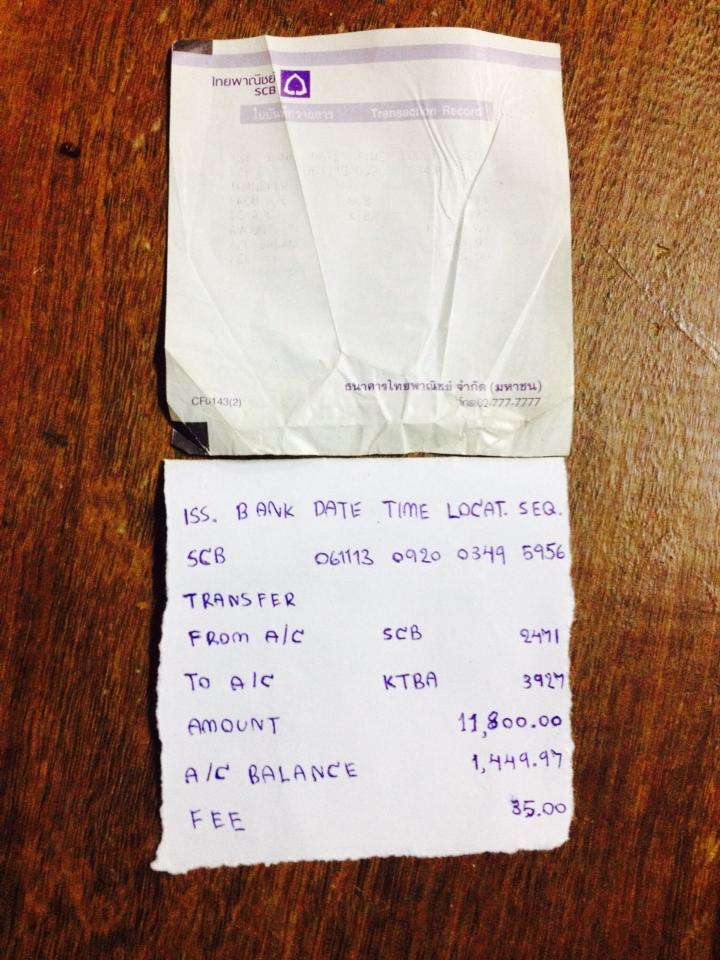 ไทยพาณิชย์
SCB
ใบบันทึกรายการ Transaction Record
ธนาคารไทยพาณิชย์ จำกัด (มหาชน)
CF6143(2) โทร.02-777-7777
ISS. BANK DATE TIME LOCAT. SEQ.
SCB 061113 0920 0349 5956
TRANSFER
FROM A/C SCB 2471
TO A/C KTBA 3927
AMOUNT 11,800.00
A/C BALANCE 1,449.97
FEE 35.00